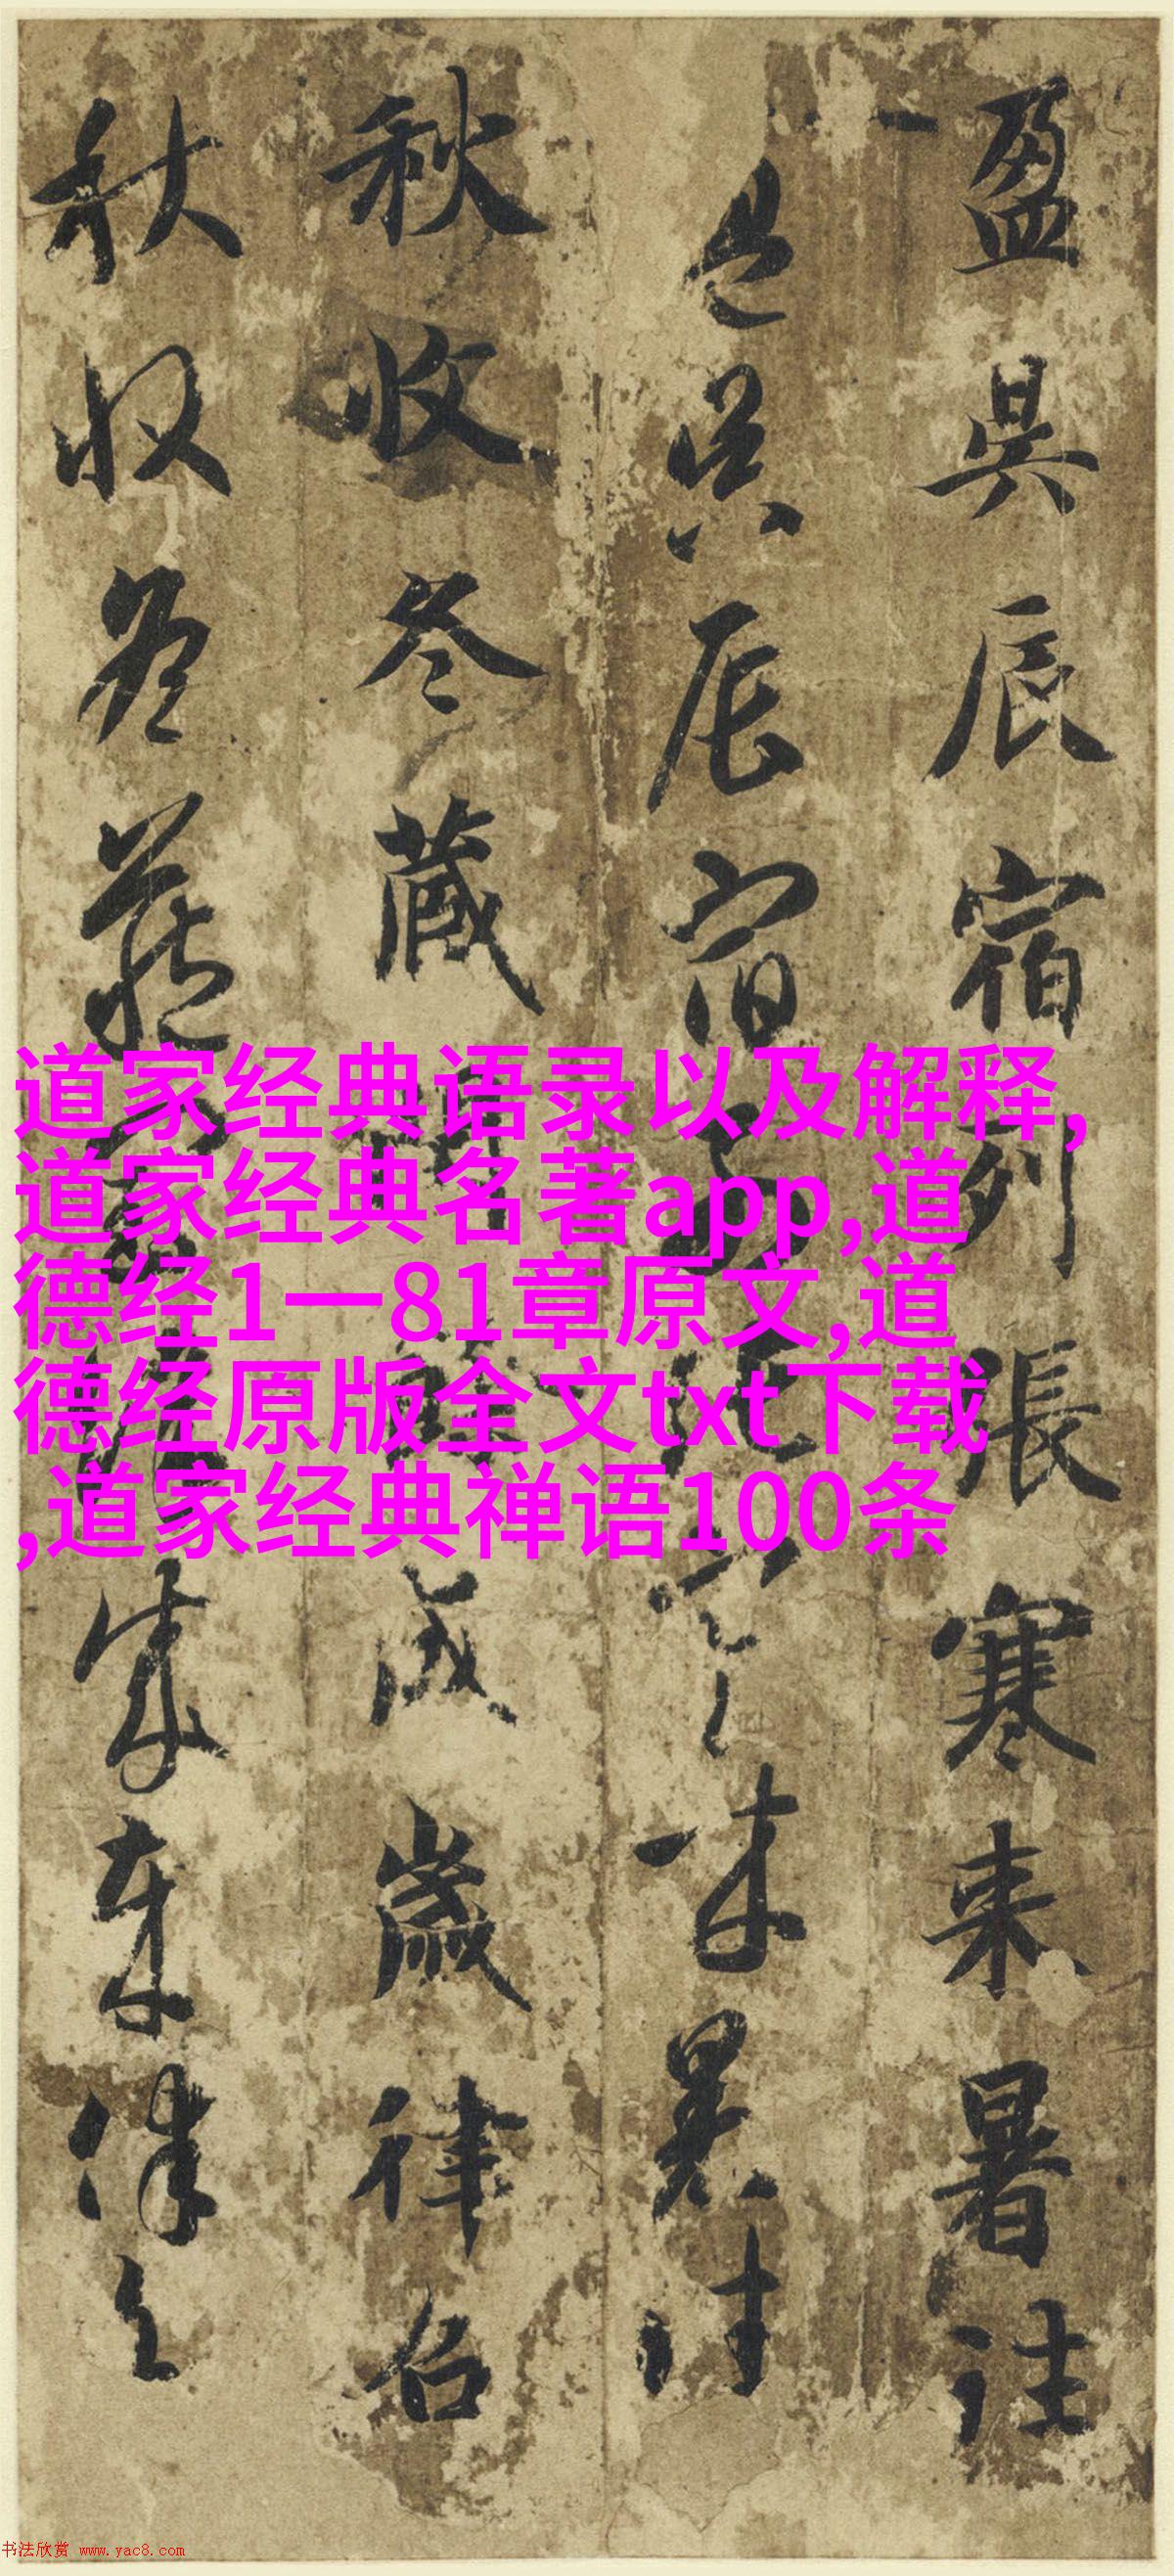 盈昃辰宿列張寒来暑往
盈昃辰宿寒来暑往
秋收冬藏成歲律召
秋收冬藏成歲律召
道家经典语录以及解释,
道家经典名著app,道
德经1一81章原文,道
德经原版全文txt下载
,道家经典禅语100条
书法欣赏 www.yac8.com